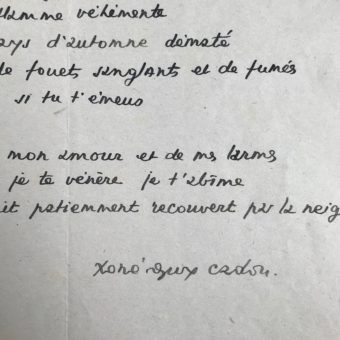 flamme véhémente
ays d'automne dématé
de fouets sanglants et de fumés
si tu t'émeus
mon amour et de ms larms
je te vénère je t'abîme
it patiemment recouvert par la neig
cadou.